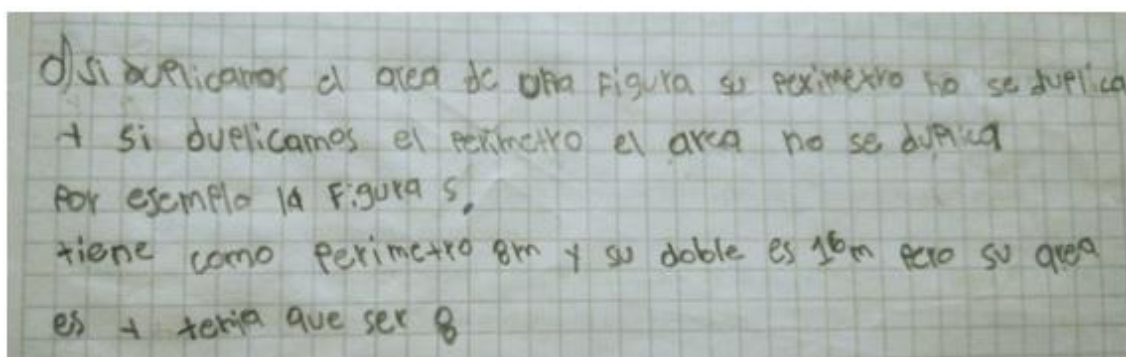 d) si duplicamos el area de una Figura su perimetro no se duplica
y si duplicamos el perimetro el area no se duplica
Por esemplo la Figura s,
tiene como Perimetro 8m y su doble es 16m pero su area
es y tenia que ser 8